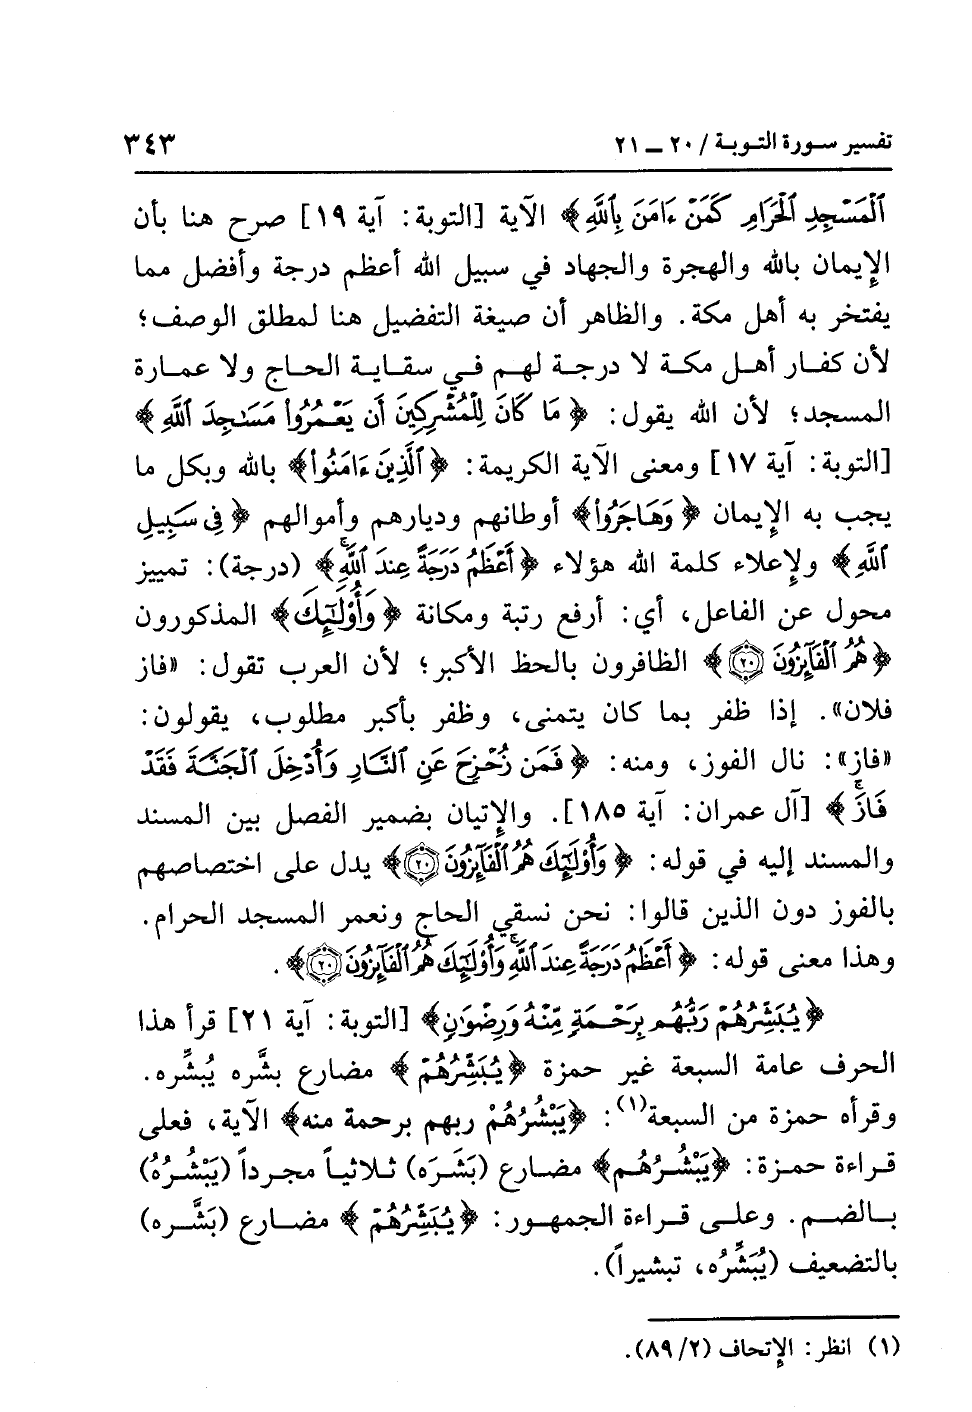 تفسير سورة التوبة / ٢٠ ــ ٢١ ٣٤٣
ٱلْمَسْجِدِ ٱلْحَرَامِ كَمَنْ ءَامَنَ بِٱللَّهِ﴾ الآية [التوبة: آية ١٩] صرح هنا بأن
الإيمان بالله والهجرة والجهاد في سبيل الله أعظم درجة وأفضل مما
يفتخر به أهل مكة. والظاهر أن صيغة التفضيل هنا لمطلق الوصف؛
لأن كفار أهل مكة لا درجة لهم في سقاية الحاج ولا عمارة
المسجد؛ لأن الله يقول: ﴿مَا كَانَ لِلْمُشْرِكِينَ أَن يَعْمُرُوا۟ مَسَـٰجِدَ ٱللَّهِ﴾
[التوبة: آية ١٧] ومعنى الآية الكريمة: ﴿ٱلَّذِينَ ءَامَنُوا۟﴾ بالله وبكل ما
يجب به الإيمان ﴿وَهَاجَرُوا۟﴾ أوطانهم وديارهم وأموالهم ﴿فِى سَبِيلِ
ٱللَّهِ﴾ ولإعلاء كلمة الله هؤلاء ﴿أَعْظَمُ دَرَجَةً عِندَ ٱللَّهِۚ﴾ (درجة): تمييز
محول عن الفاعل، أي: أرفع رتبة ومكانة ﴿وَأُو۟لَـٰٓئِكَ﴾ المذكورون
﴿هُمُ ٱلْفَآئِزُونَ ۝٢٠﴾ الظافرون بالحظ الأكبر؛ لأن العرب تقول: «فاز
فلان». إذا ظفر بما كان يتمنى، وظفر بأكبر مطلوب، يقولون:
«فاز»: نال الفوز، ومنه: ﴿فَمَن زُحْزِحَ عَنِ ٱلنَّارِ وَأُدْخِلَ ٱلْجَنَّةَ فَقَدْ
فَازَۗ﴾ [آل عمران: آية ١٨٥]. والإتيان بضمير الفصل بين المسند
والمسند إليه في قوله: ﴿وَأُو۟لَـٰٓئِكَ هُمُ ٱلْفَآئِزُونَ ۝٢٠﴾ يدل على اختصاصهم
بالفوز دون الذين قالوا: نحن نسقي الحاج ونعمر المسجد الحرام.
وهذا معنى قوله: ﴿أَعْظَمُ دَرَجَةً عِندَ ٱللَّهِۚ وَأُو۟لَـٰٓئِكَ هُمُ ٱلْفَآئِزُونَ ۝٢٠﴾.
﴿يُبَشِّرُهُمْ رَبُّهُم بِرَحْمَةٍ مِّنْهُ وَرِضْوَٰنٍ﴾ [التوبة: آية ٢١] قرأ هذا
الحرف عامة السبعة غير حمزة ﴿يُبَشِّرُهُمْ﴾ مضارع بشَّره يُبشِّره.
وقرأه حمزة من السبعة(١): ﴿يَبْشُرُهُمْ ربهم برحمة منه﴾ الآية، فعلى
قراءة حمزة: ﴿يَبْشُرُهُم﴾ مضارع (بَشَرَه) ثلاثياً مجرداً (يَبْشُرُهُ)
بالضم. وعلى قراءة الجمهور: ﴿يُبَشِّرُهُمْ﴾ مضارع (بَشَّره)
بالتضعيف (يُبَشِّرُه، تبشيراً).
(١) انظر: الإتحاف (٨٩/٢).